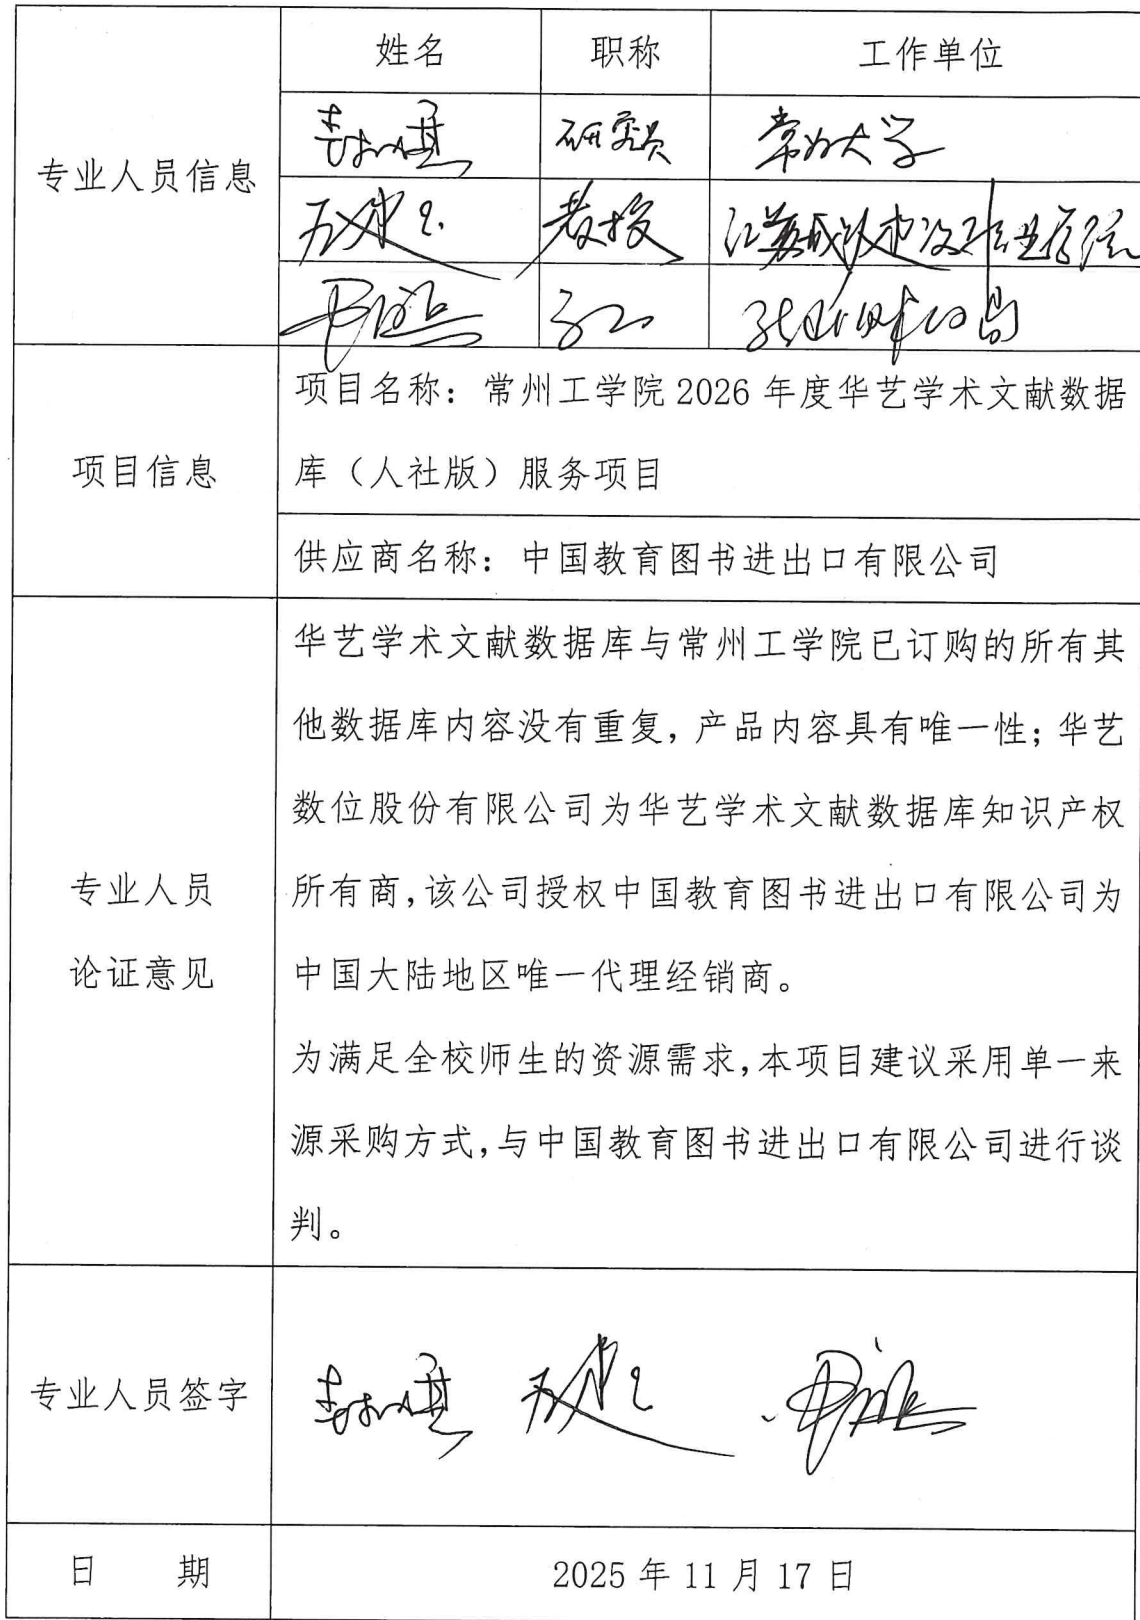 姓名 职称 工作单位
专业人员信息
研究员 常州大学
教授 江苏城乡建设职业学院
项目信息
项目名称：常州工学院 2026 年度华艺学术文献数据
库（人社版）服务项目
供应商名称：中国教育图书进出口有限公司
专业人员
论证意见
华艺学术文献数据库与常州工学院已订购的所有其
他数据库内容没有重复，产品内容具有唯一性；华艺
数位股份有限公司为华艺学术文献数据库知识产权
所有商，该公司授权中国教育图书进出口有限公司为
中国大陆地区唯一代理经销商。
为满足全校师生的资源需求，本项目建议采用单一来
源采购方式，与中国教育图书进出口有限公司进行谈
判。
专业人员签字
日 期 2025 年 11 月 17 日